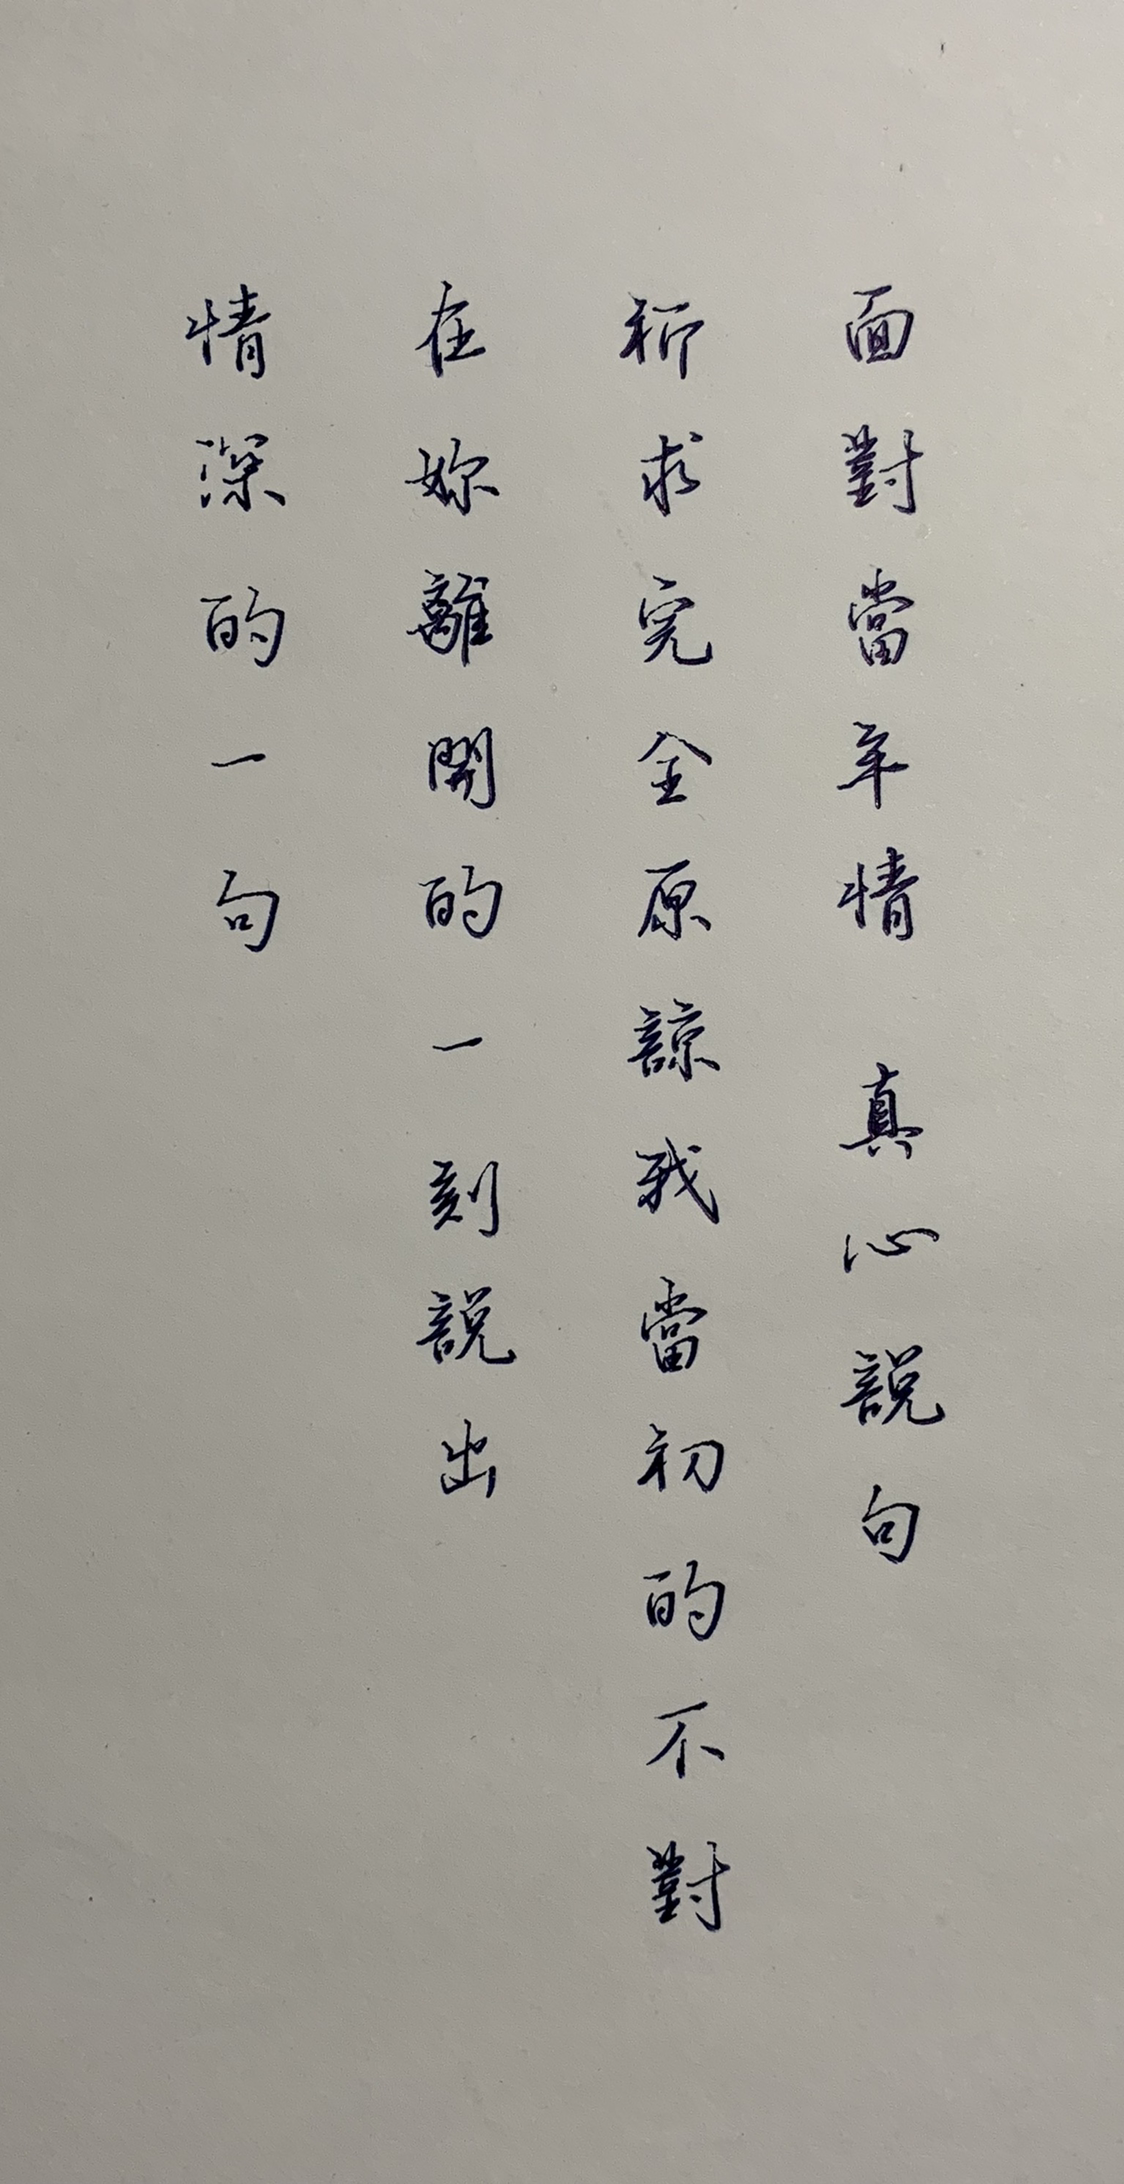 面對當年情 真心說句
祈求完全原諒我當初的不對
在妳離開的一刻說出
情深的一句